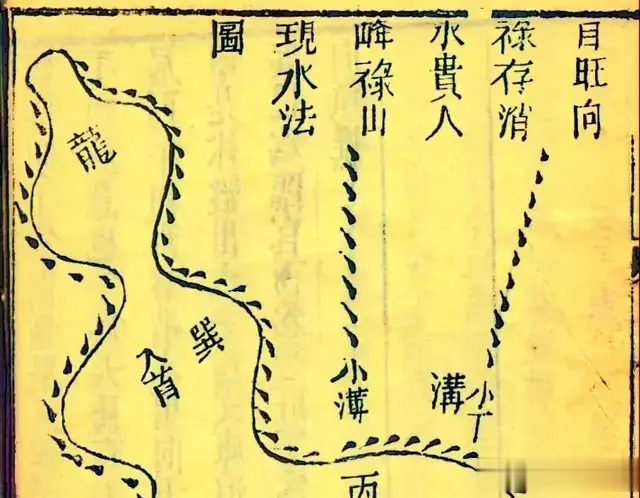 自旺向
祿存消
水貴人
峰祿山
現水法
圖
龍
巽
入首
小溝
小丁
溝
丙